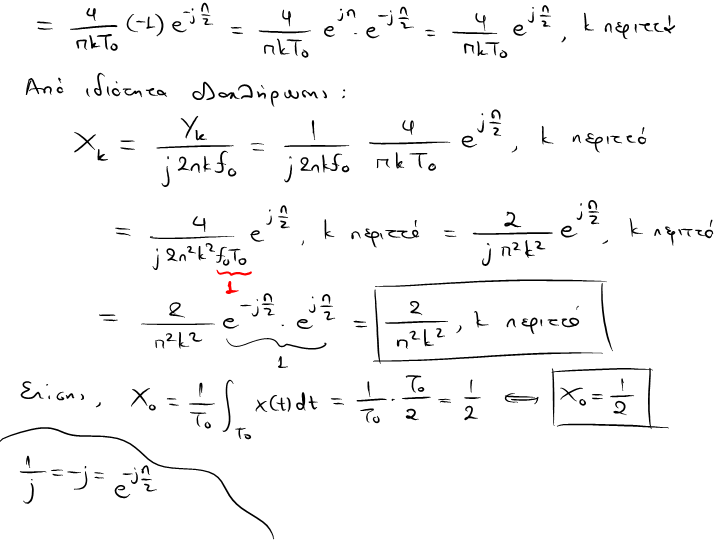 = \frac{4}{πkT₀} (-1) e^{-j\frac{π}{2}} = \frac{4}{πkT₀} e^{jπ} · e^{-j\frac{π}{2}} = \frac{4}{πkT₀} e^{j\frac{π}{2}}, k περιττό
Από ιδιότητα ολοκλήρωσης:
X_k = \frac{Y_k}{j2πkf₀} = \frac{1}{j2πkf₀} \frac{4}{πkT₀} e^{j\frac{π}{2}}, k περιττό
= \frac{4}{j2π²k²f₀T₀} e^{j\frac{π}{2}}, k περιττό = \frac{2}{jπ²k²} e^{j\frac{π}{2}}, k περιττό
1
= \frac{2}{π²k²} e^{-j\frac{π}{2}} · e^{j\frac{π}{2}} = \frac{2}{π²k²}, k περιττό
1
Επίσης, X₀ = \frac{1}{T₀} ∫_{T₀} x(t)dt = \frac{1}{T₀} · \frac{T₀}{2} = \frac{1}{2} ⟺ X₀ = \frac{1}{2}
\frac{1}{j} = -j = e^{-j\frac{π}{2}}